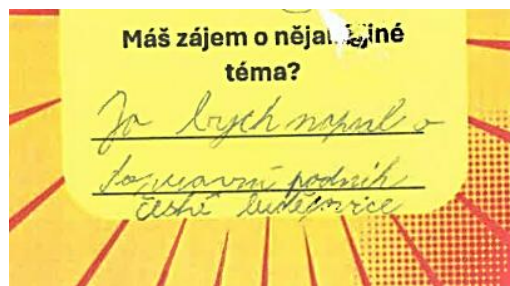 Máš zájem o nějaké jiné
téma?
Ja bych napsal o
Dopravní podnik
České budějovice